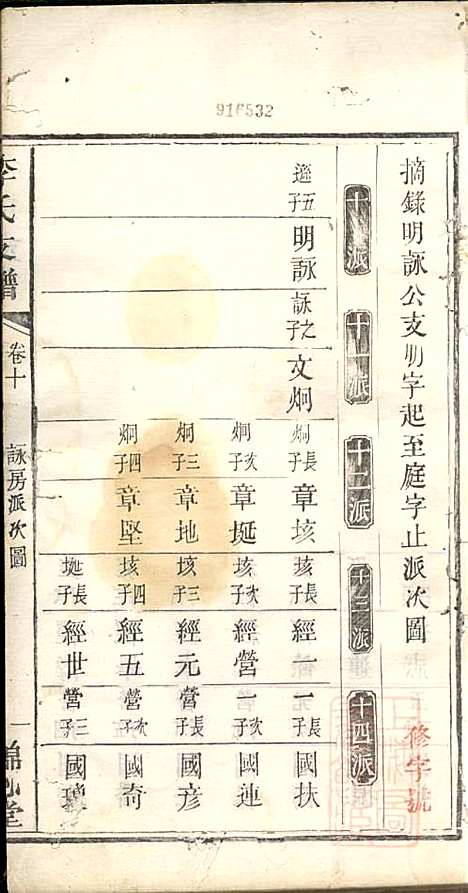 916532
摘錄明詠公支明字起至庭字止派次圖
修字號
十派
十一派
十二派
十三派
十四派
遜五子 明詠
詠之子 文炯
炯長子 章垓
垓長子 經一
一長子 國扶
炯次子 章埏
垓次子 經營
一次子 國連
炯三子 章地
垓三子 經元
營長子 國彦
炯四子 章堅
垓四子 經五
營次子 國奇
埏長子 經世
營三子 國璸
李氏支譜
卷十
詠房派次圖
一